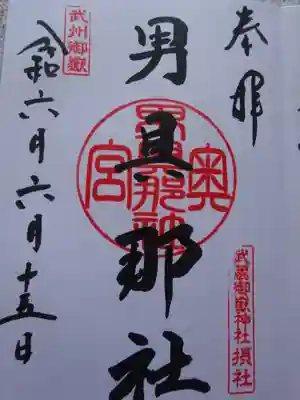 奉拝
武蔵御嶽神社摂社
男具那社
奥宮
武州御嶽
令和六月六月十五日